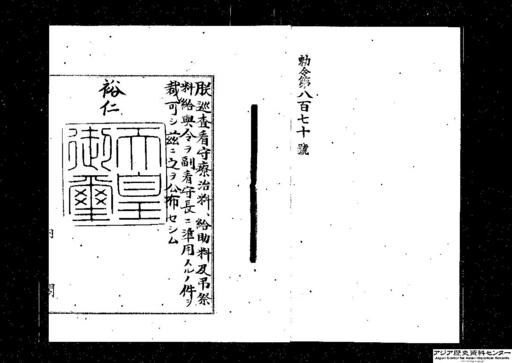 勅令第八百七十號
朕巡査看守療治料、給助料及弔祭
料給與令ヲ副看守長ニ準用スルノ件ヲ
裁可シ茲ニ之ヲ公布セシム
裕仁
天皇
御璽
内
閣
アジア歴史資料センター
Japan Center for Asian Historical Records